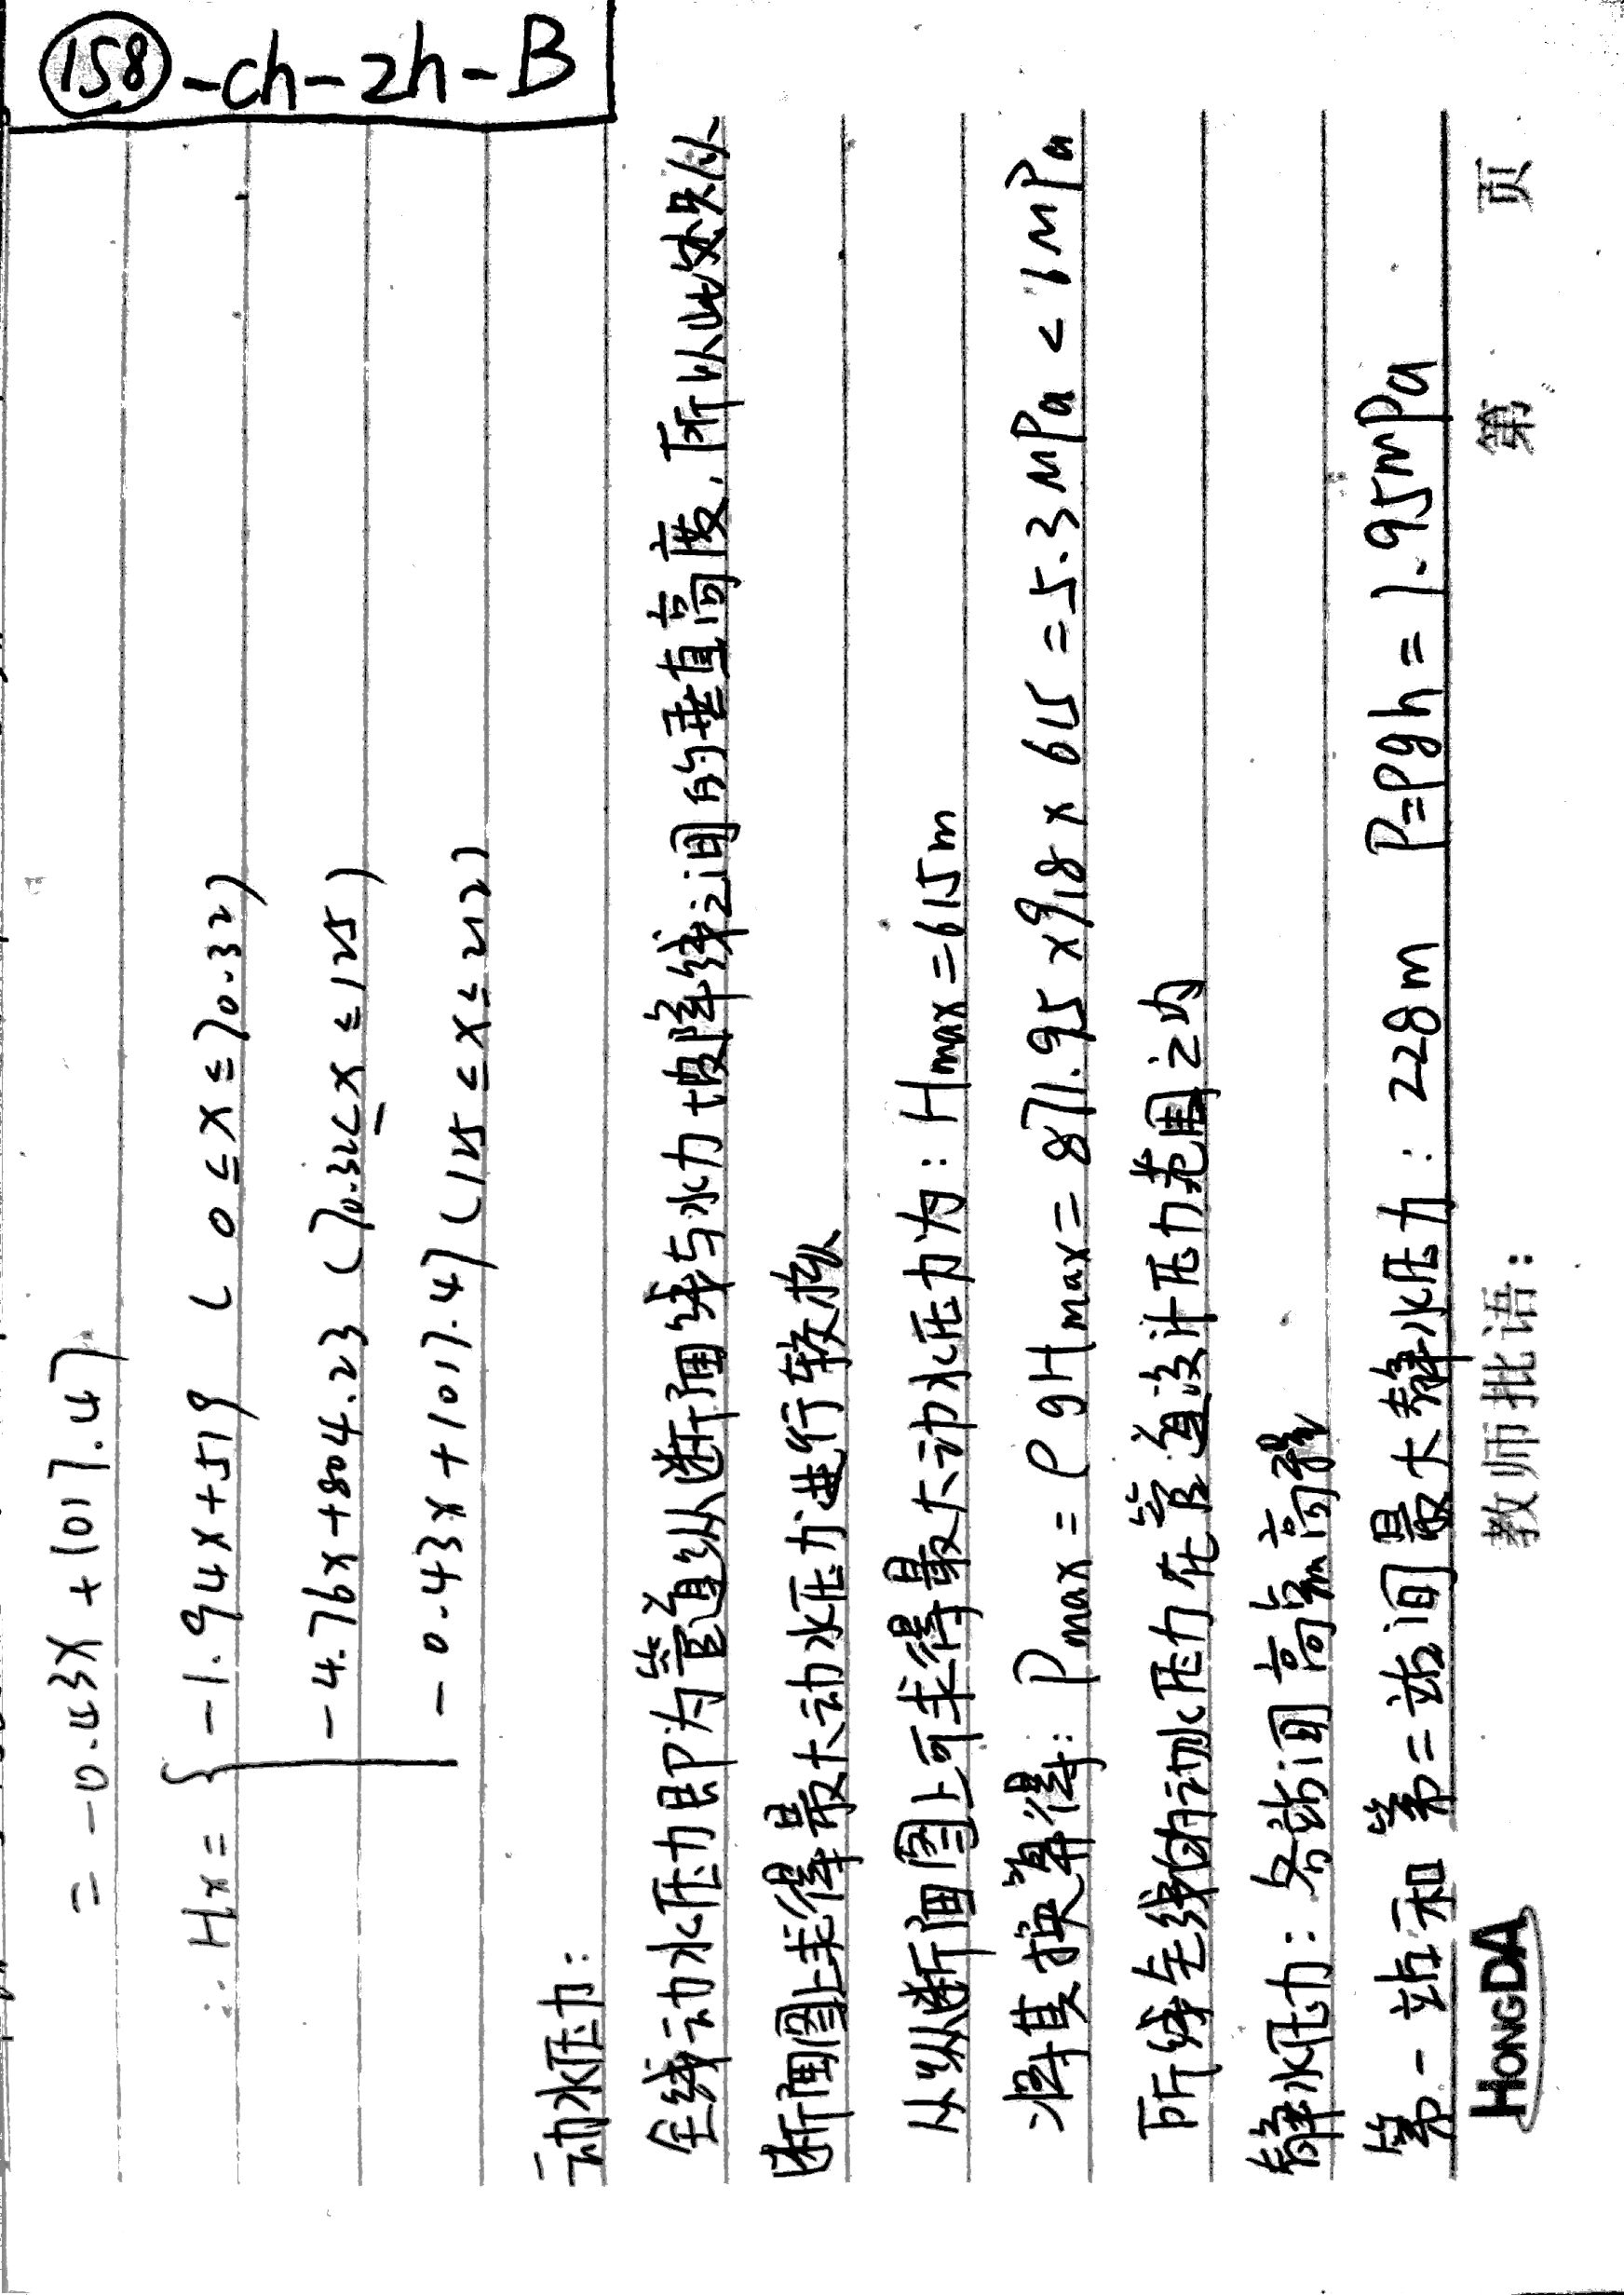 158-ch-2h-B
= -0.43x + 1017.47
∴ Hx = { -1.94x+519 ( 0 ≤ x ≤ 70.32)
-4.76x+804.23 (70.32 ≤ x ≤ 125)
-0.43x+1017.47 (125 ≤ x ≤ 212)
动水压力:
全线动水压力即为管道纵断面线与水力坡降线之间的垂直高度,所以此处只从
断面图上求得最大动水压力进行较核
从纵断面图上可求得最大动水压力为: Hmax=615m
将其换算得: Pmax = ρgHmax = 871.95×9.8×615=5.3MPa < 6MPa
所线全线的动水压力在管道设计压力范围之内
静水压力: 各站间高点高程
第一站和第二站间最大静水压力: 228m P=ρgh=1.95mPa
HONGDA 教师批语: 第 页